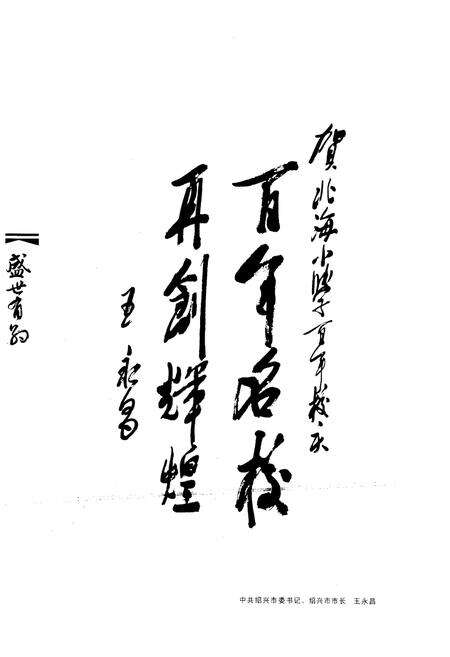 贺北海小学百年校庆
百年名校
再创辉煌
王永昌
盛世有约
中共绍兴市委书记、绍兴市市长 王永昌